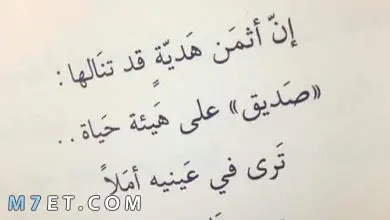 إنّ أثمَن هَديّةٍ قد تنَالها :
«صَديق» على هَيئة حَياة ..
تَرى في عَينيه أمَلاً
M7ET.COM